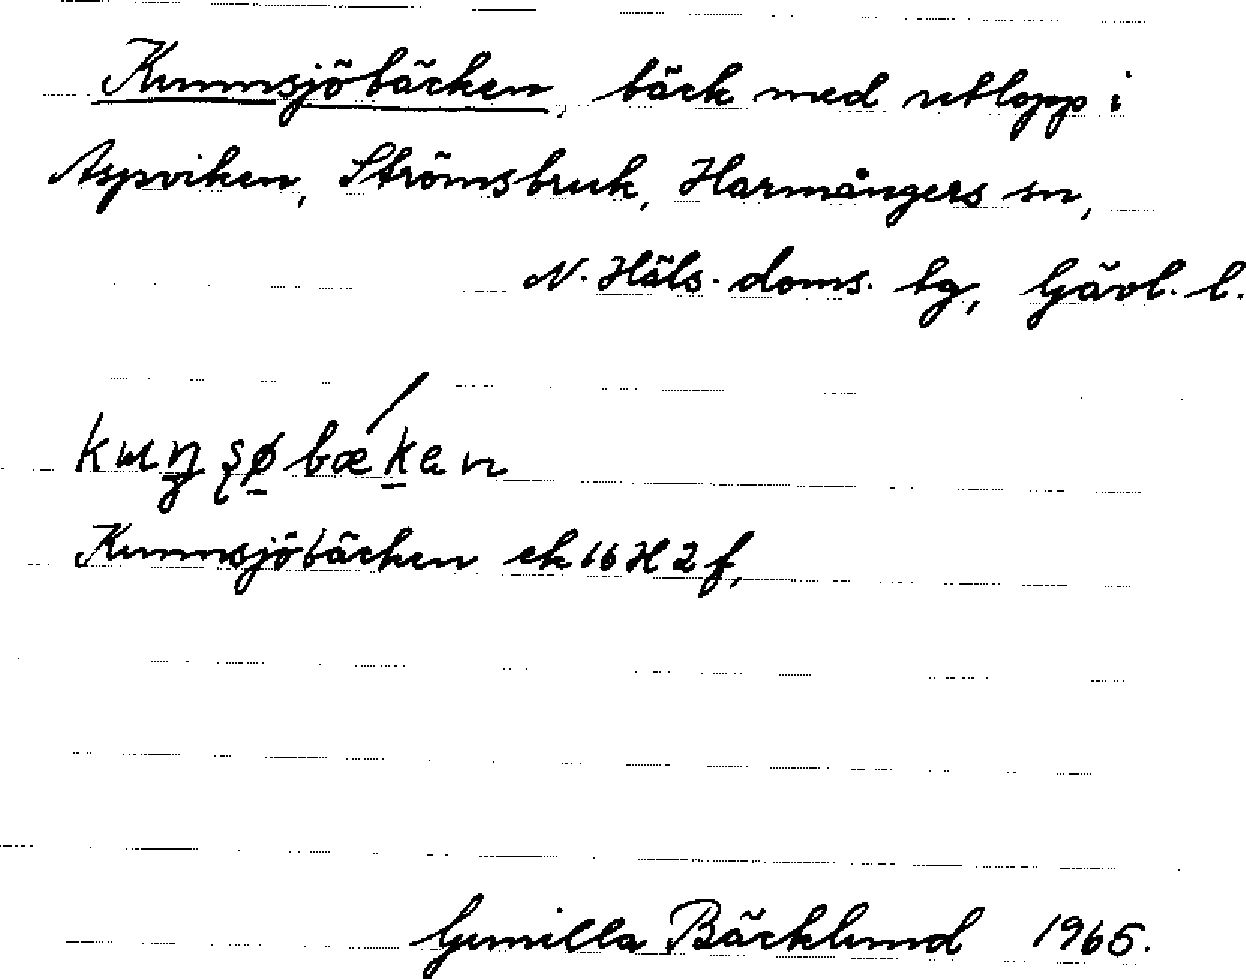 Kunnsjöbäcken, bäck med utlopp i
Aspviken, Strömsbruk, Harmångers sn,
N. Häls. doms. tg, Gävl. l.
kuŋʂøbækan
Kunnsjöbäcken ek 16 H 2 f,
Gunilla Bäcklund 1965.